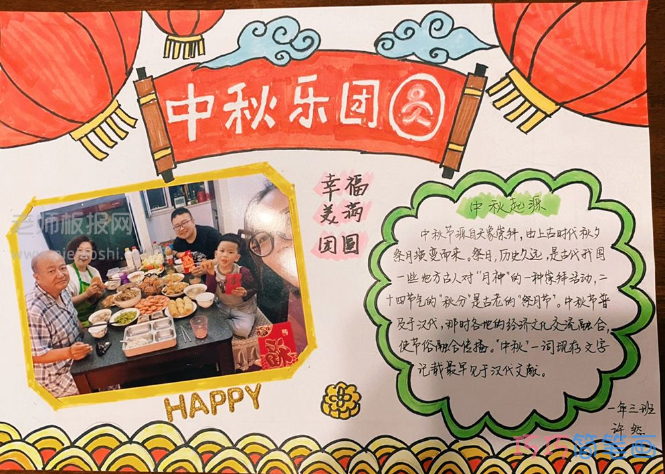 中秋乐团圆
幸福
美满
团圆
中秋起源
中秋节源自天象崇拜，由上古时代秋夕
祭月演变而来。祭月，历史久远，是古代我国
一些地方古人对“月神”的一种崇拜活动，二
十四节气的“秋分”是古老的“祭月节”。中秋节普
及于汉代，那时各地的经济文化交流融合，
使节俗融合传播。“中秋”一词现存文字
记载最早见于汉代文献。
HAPPY
一年三班
许
老师板报网